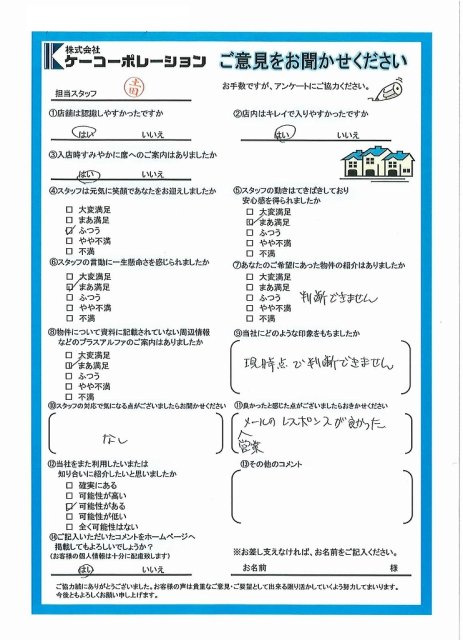 株式会社
ケーコーポレーション
ご意見をお聞かせください
担当スタッフ
お手数ですが、アンケートにご協力ください。
①店舗は認識しやすかったですか
はい いいえ
②店内はキレイで入りやすかったですか
はい いいえ
③入店時すみやかに席へのご案内はありましたか
はい いいえ
④スタッフは元気に笑顔であなたをお迎えしましたか
□ 大変満足
□ まあ満足
☑ ふつう
□ やや不満
□ 不満
⑤スタッフの動きはてきぱきしており
安心感を得られましたか
□ 大変満足
☑ まあ満足
□ ふつう
□ やや不満
□ 不満
⑥スタッフの言動に一生懸命さを感じられましたか
□ 大変満足
☑ まあ満足
□ ふつう
□ やや不満
□ 不満
⑦あなたのご希望にあった物件の紹介はありましたか
□ 大変満足
□ まあ満足
□ ふつう
□ やや不満
□ 不満
判断できません
⑧物件について資料に記載されていない周辺情報
などのプラスアルファのご案内はありましたか
□ 大変満足
☑ まあ満足
□ ふつう
□ やや不満
□ 不満
⑨当社にどのような印象をもちましたか
現時点で判断できません
⑩スタッフの対応で気になる点がございましたらお聞かせください
なし
⑪良かったと感じた点がございましたらおきかせください
メールのレスポンスが良かった
営業
⑫当社をまた利用したいまたは
知り合いに紹介したいと思いましたか
□ 確実にある
□ 可能性が高い
☑ 可能性がある
□ 可能性が低い
□ 全く可能性はない
⑬その他のコメント
⑭ご記入いただいたコメントをホームページへ
掲載してもよろしいでしょうか?
(お客様の個人情報は十分に配慮致します)
はい いいえ
※お差し支えなければ、お名前をご記入ください。
お名前 様
ご協力誠にありがとうございました。お客様の声は貴重なご意見・ご要望として出来る限り活かしていくよう努力してまいります。
今後ともよろしくお願い申し上げます。